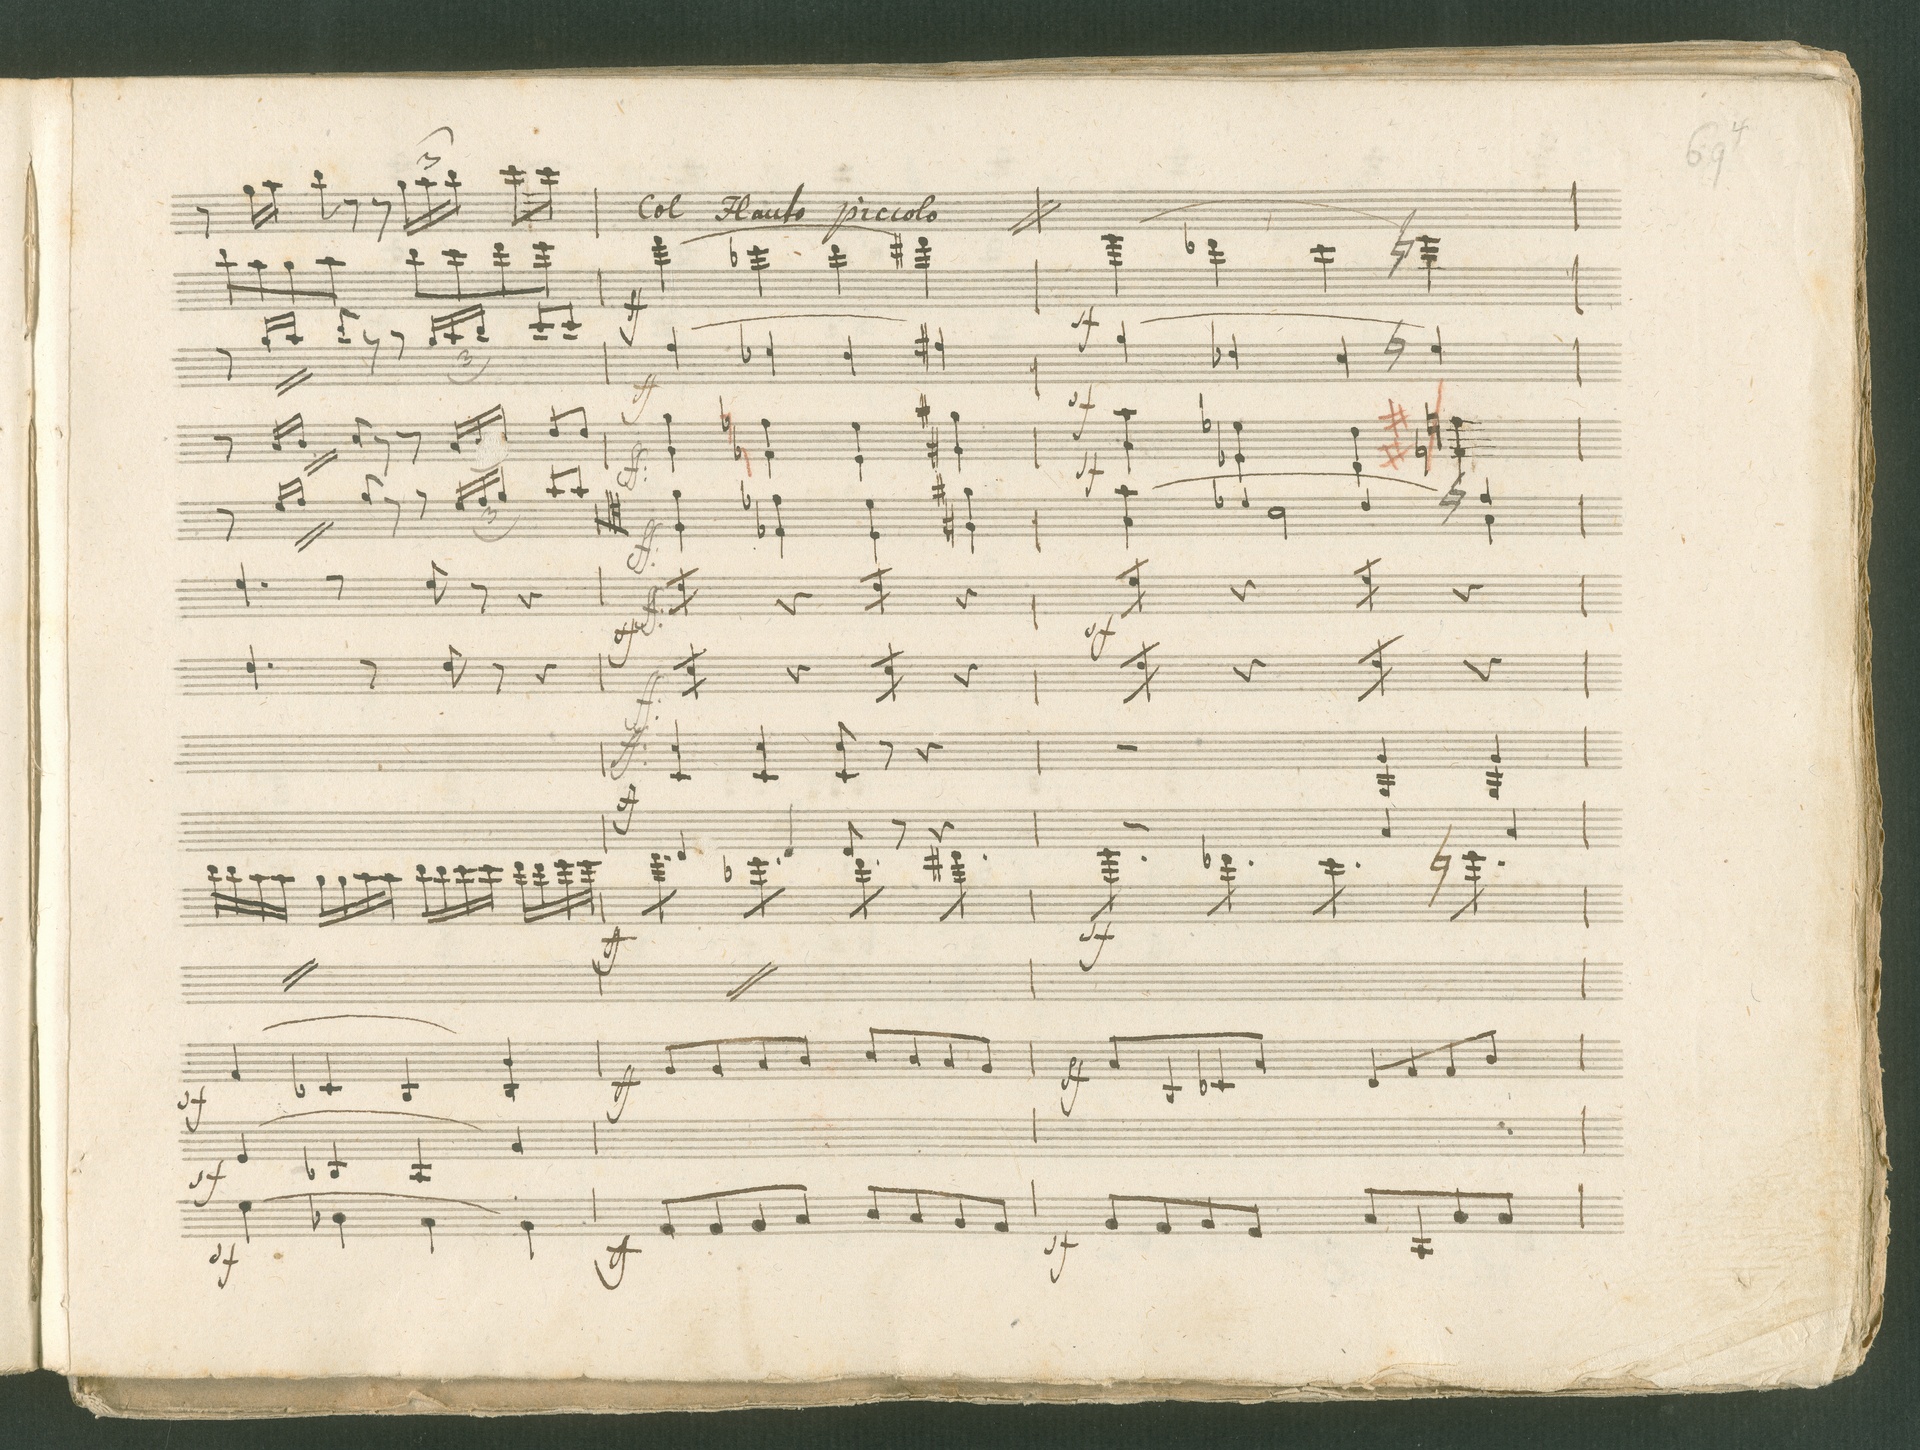 69
3
Col Flauto piccolo
ff
sf
3
ff
sf
ff.
sf
3
ff.
sf
ff.
sf
ff.
ff.
sf
ff
sf
sf
ff
sf
sf
sf
ff
sf